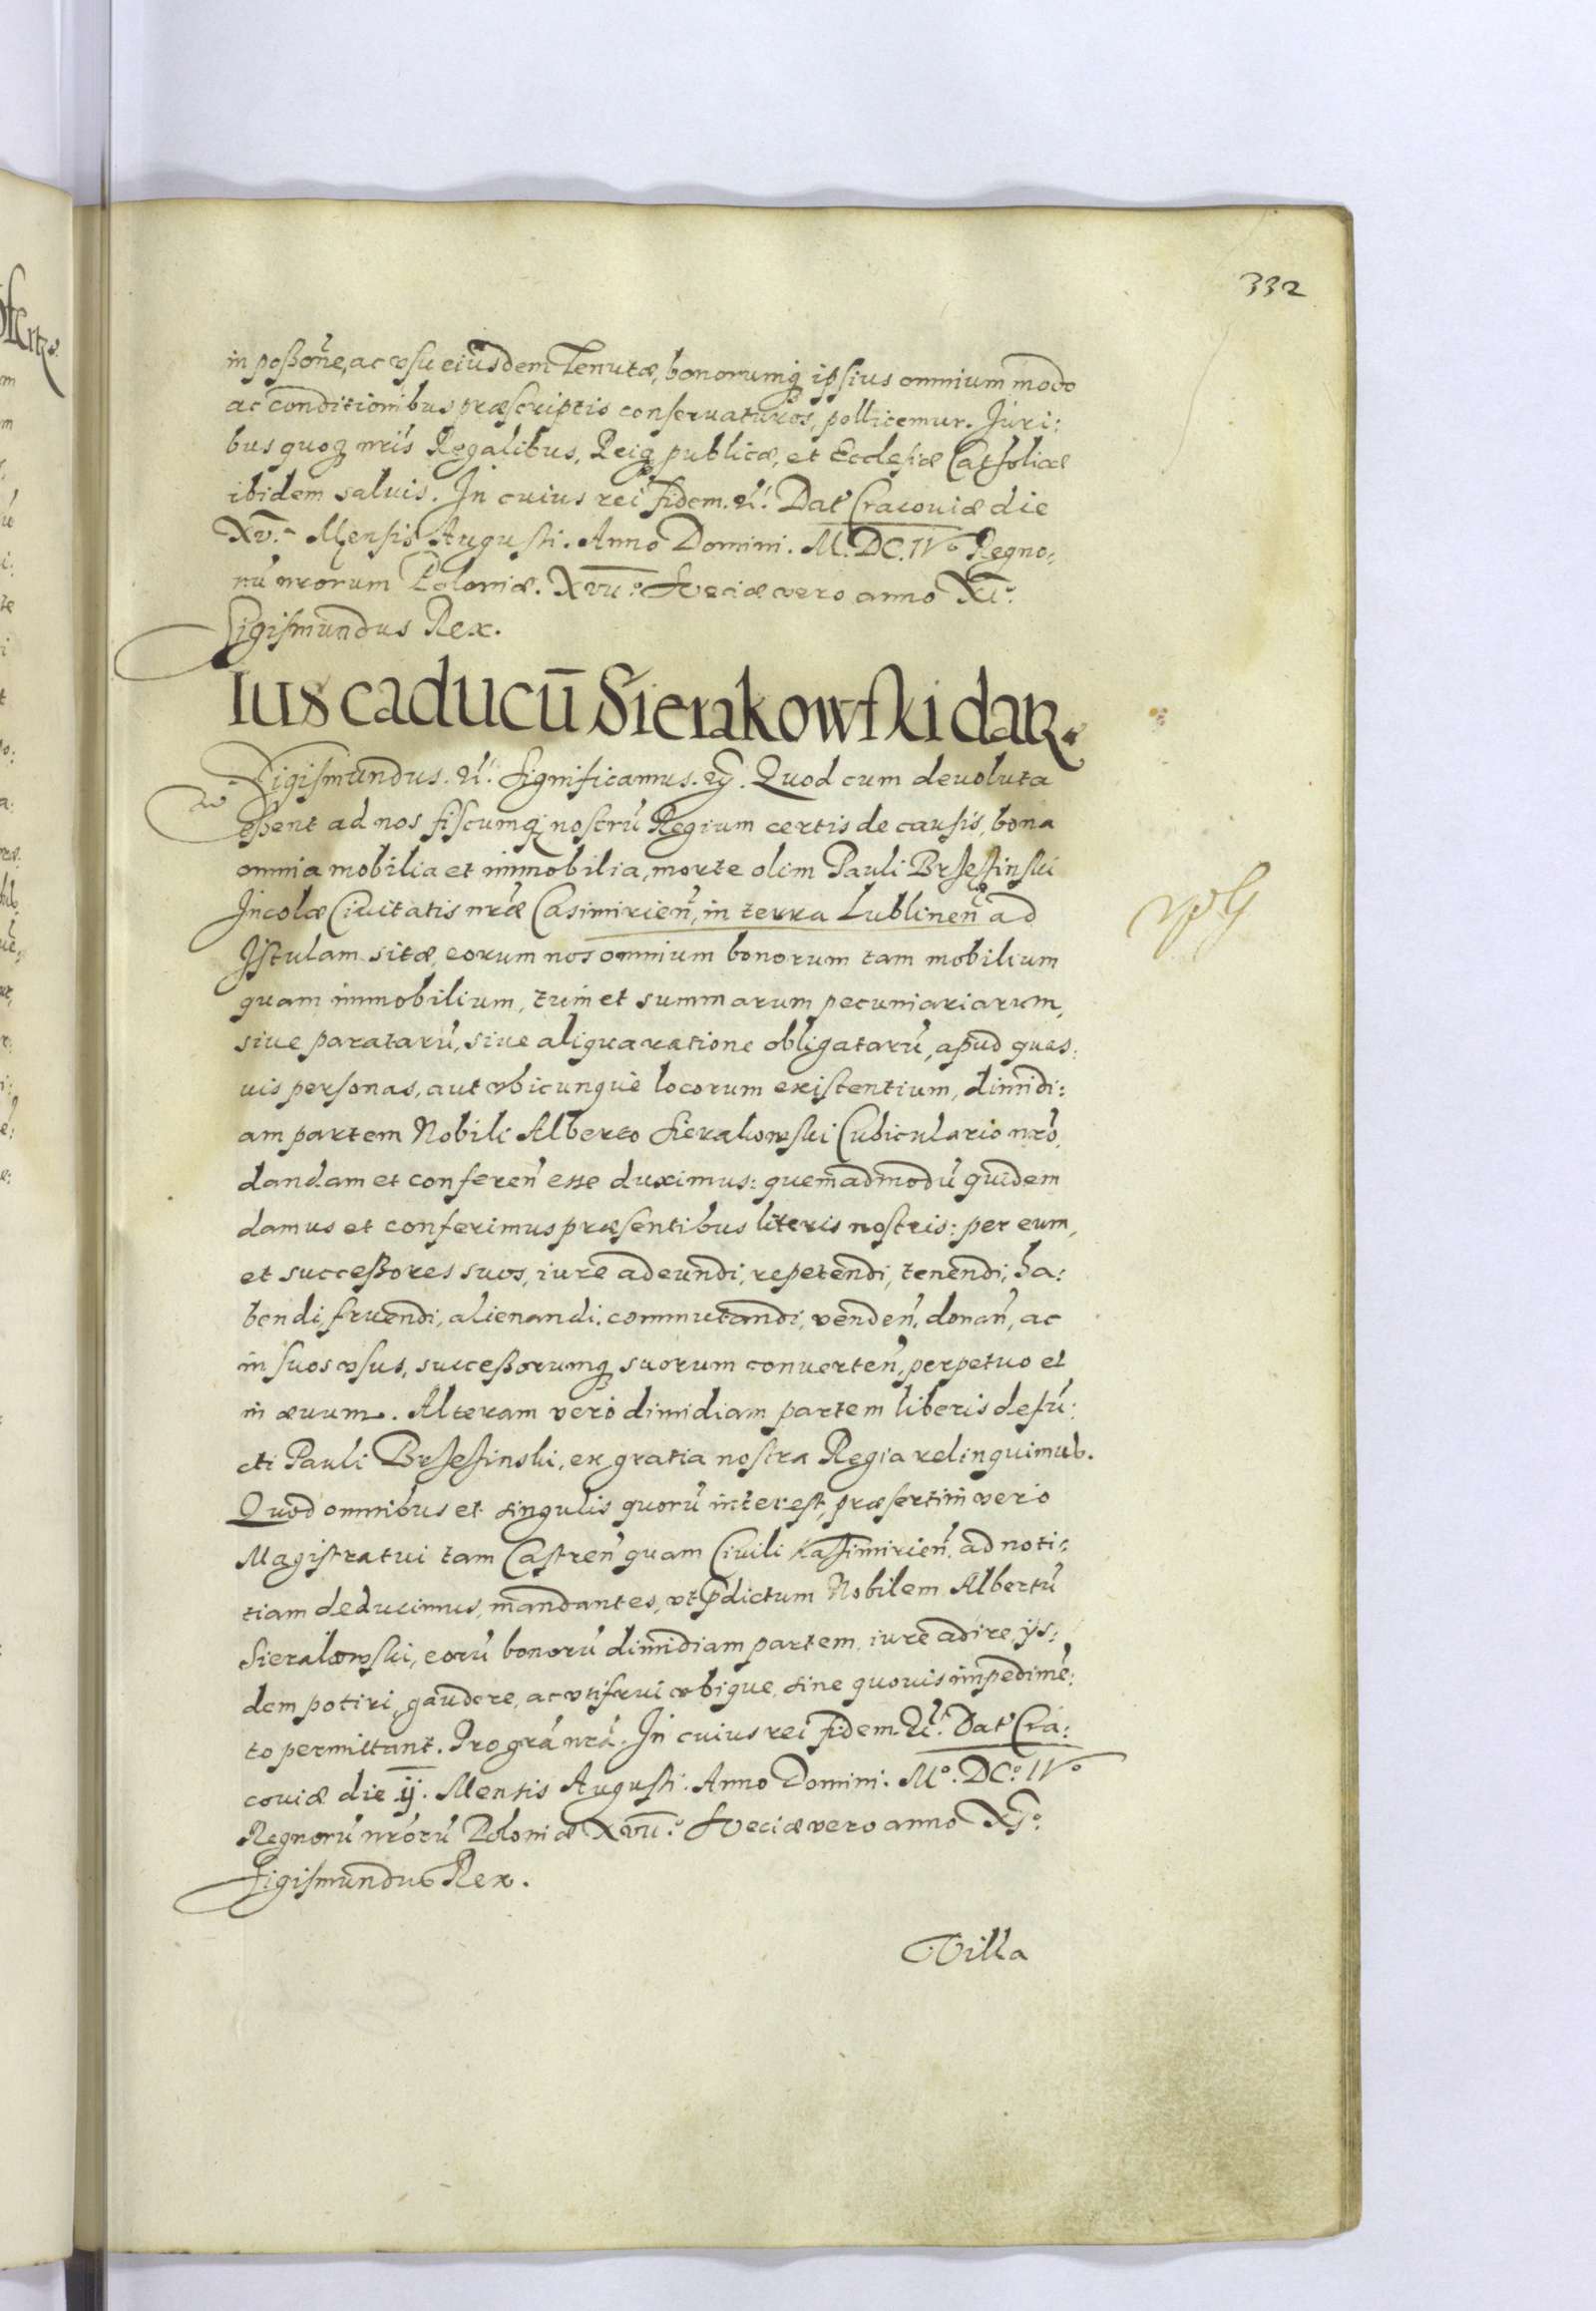 332
in possõne, ac vsu eiusdem Tenutæ, bonorumq; ipsius omnium modo
ac conditionibus præscriptis conseruaturos, pollicemur. Juri:
bus quoq; nrĩs Regalibus, Reiq; publicæ, et Ecclesiæ Catholicæ
ibidem saluis. In cuius rei fidem. etc. Dat̃ Cracouiæ die
XV. Mensis Augusti. Anno Domini. M. DC. IVo Regno:
nũ nrorum Poloniæ. XVIIo. Sveciæ vero anno XIo.
Sigismundus Rex.
Ius caducũ Sierakowski datz.
Sigismundus. etc. Significamus. etc. Quod cum deuoluta
essent ad nos fiscumq; nostrũ Regium certis de causis, bona
omnia mobilia et immobilia, morte olim Pauli Brzezinski
Incolæ Ciuitatis nrãe Casimirieñ, in terra Lublineñ ad
Istulam sitæ, eorum nos omnium bonorum tam mobilium
quam immobilium, tum et summarum pecuniariarum,
siue paratarũ, siue aliqua ratione obligatarũ, apud quas:
uis personas, aut vbicunque locorum existentium, dimidi:
am partem Nobili Alberto Sierakowski Cubiculario nrõ,
dandam et conferen̄ esse duximus: quemadmodũ quidem
damus et conferimus præsentibus literis nostris: per eum,
et successores suos, iure adeundi, repetendi, tenendi, ha:
bendi, fruendi, alienandi, commutandi, venden̄, donan̄, ac
in suos vsus, successorumq; suorum conuerten̄, perpetuo et
in æuum. Alteram vero dimidiam partem liberis defũ:
cti Pauli Brzezinski, ex gratia nostra Regia relinquimus.
Quod omnibus et singulis quorũ interest, præsertim vero
Magistratui tam Castren̄ quam Ciuili Kasimirien̄, ad noti:
tiam deducimus, mandantes, vt p̃dictum Nobilem Albertũ
Sierakowski, eorũ bonorũ dimidiam partem, iure adire, ys:
dem potiri, gaudere, ac vtifrui vbique, sine quouis impedimẽ:
to permittant. Pro grã nrã. In cuius rei fidem. etc. Dat̃ Cra:
couiæ die ij. Mensis Augusti. Anno Domini. Mo. DCo. IVo
Regnorũ nrõrũ Poloniæ XVIIo. Sveciæ vero anno XIo.
Sigismundus Rex.
Villa